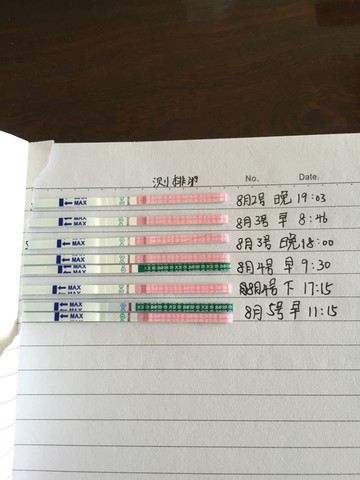 测排卵 No. Date.
MAX 8月2号 晚 19:03
MAX 8月3号 早 8:46
MAX 8月3号 晚 18:00
MAX
MAX 8月4号 早 9:30
MAX 8月4号 下 17:15
MAX
MAX 8月5号 早 11:15